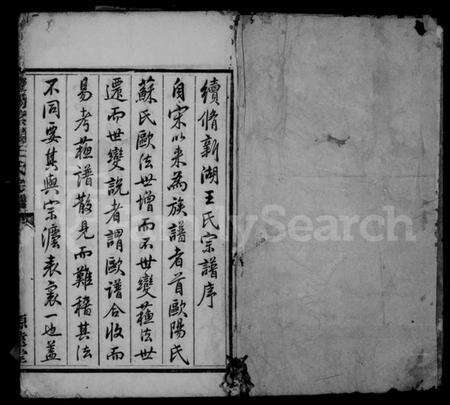 續脩新湖王氏宗譜序
自宋以来為族譜者首歐陽氏
蘇氏歐法世增而不世變蘓法世
遷而世變說者謂歐譜合收而
易考蘓譜散見而難稽其法
不同要其與宗灋表裏一也盖
FamilySearch